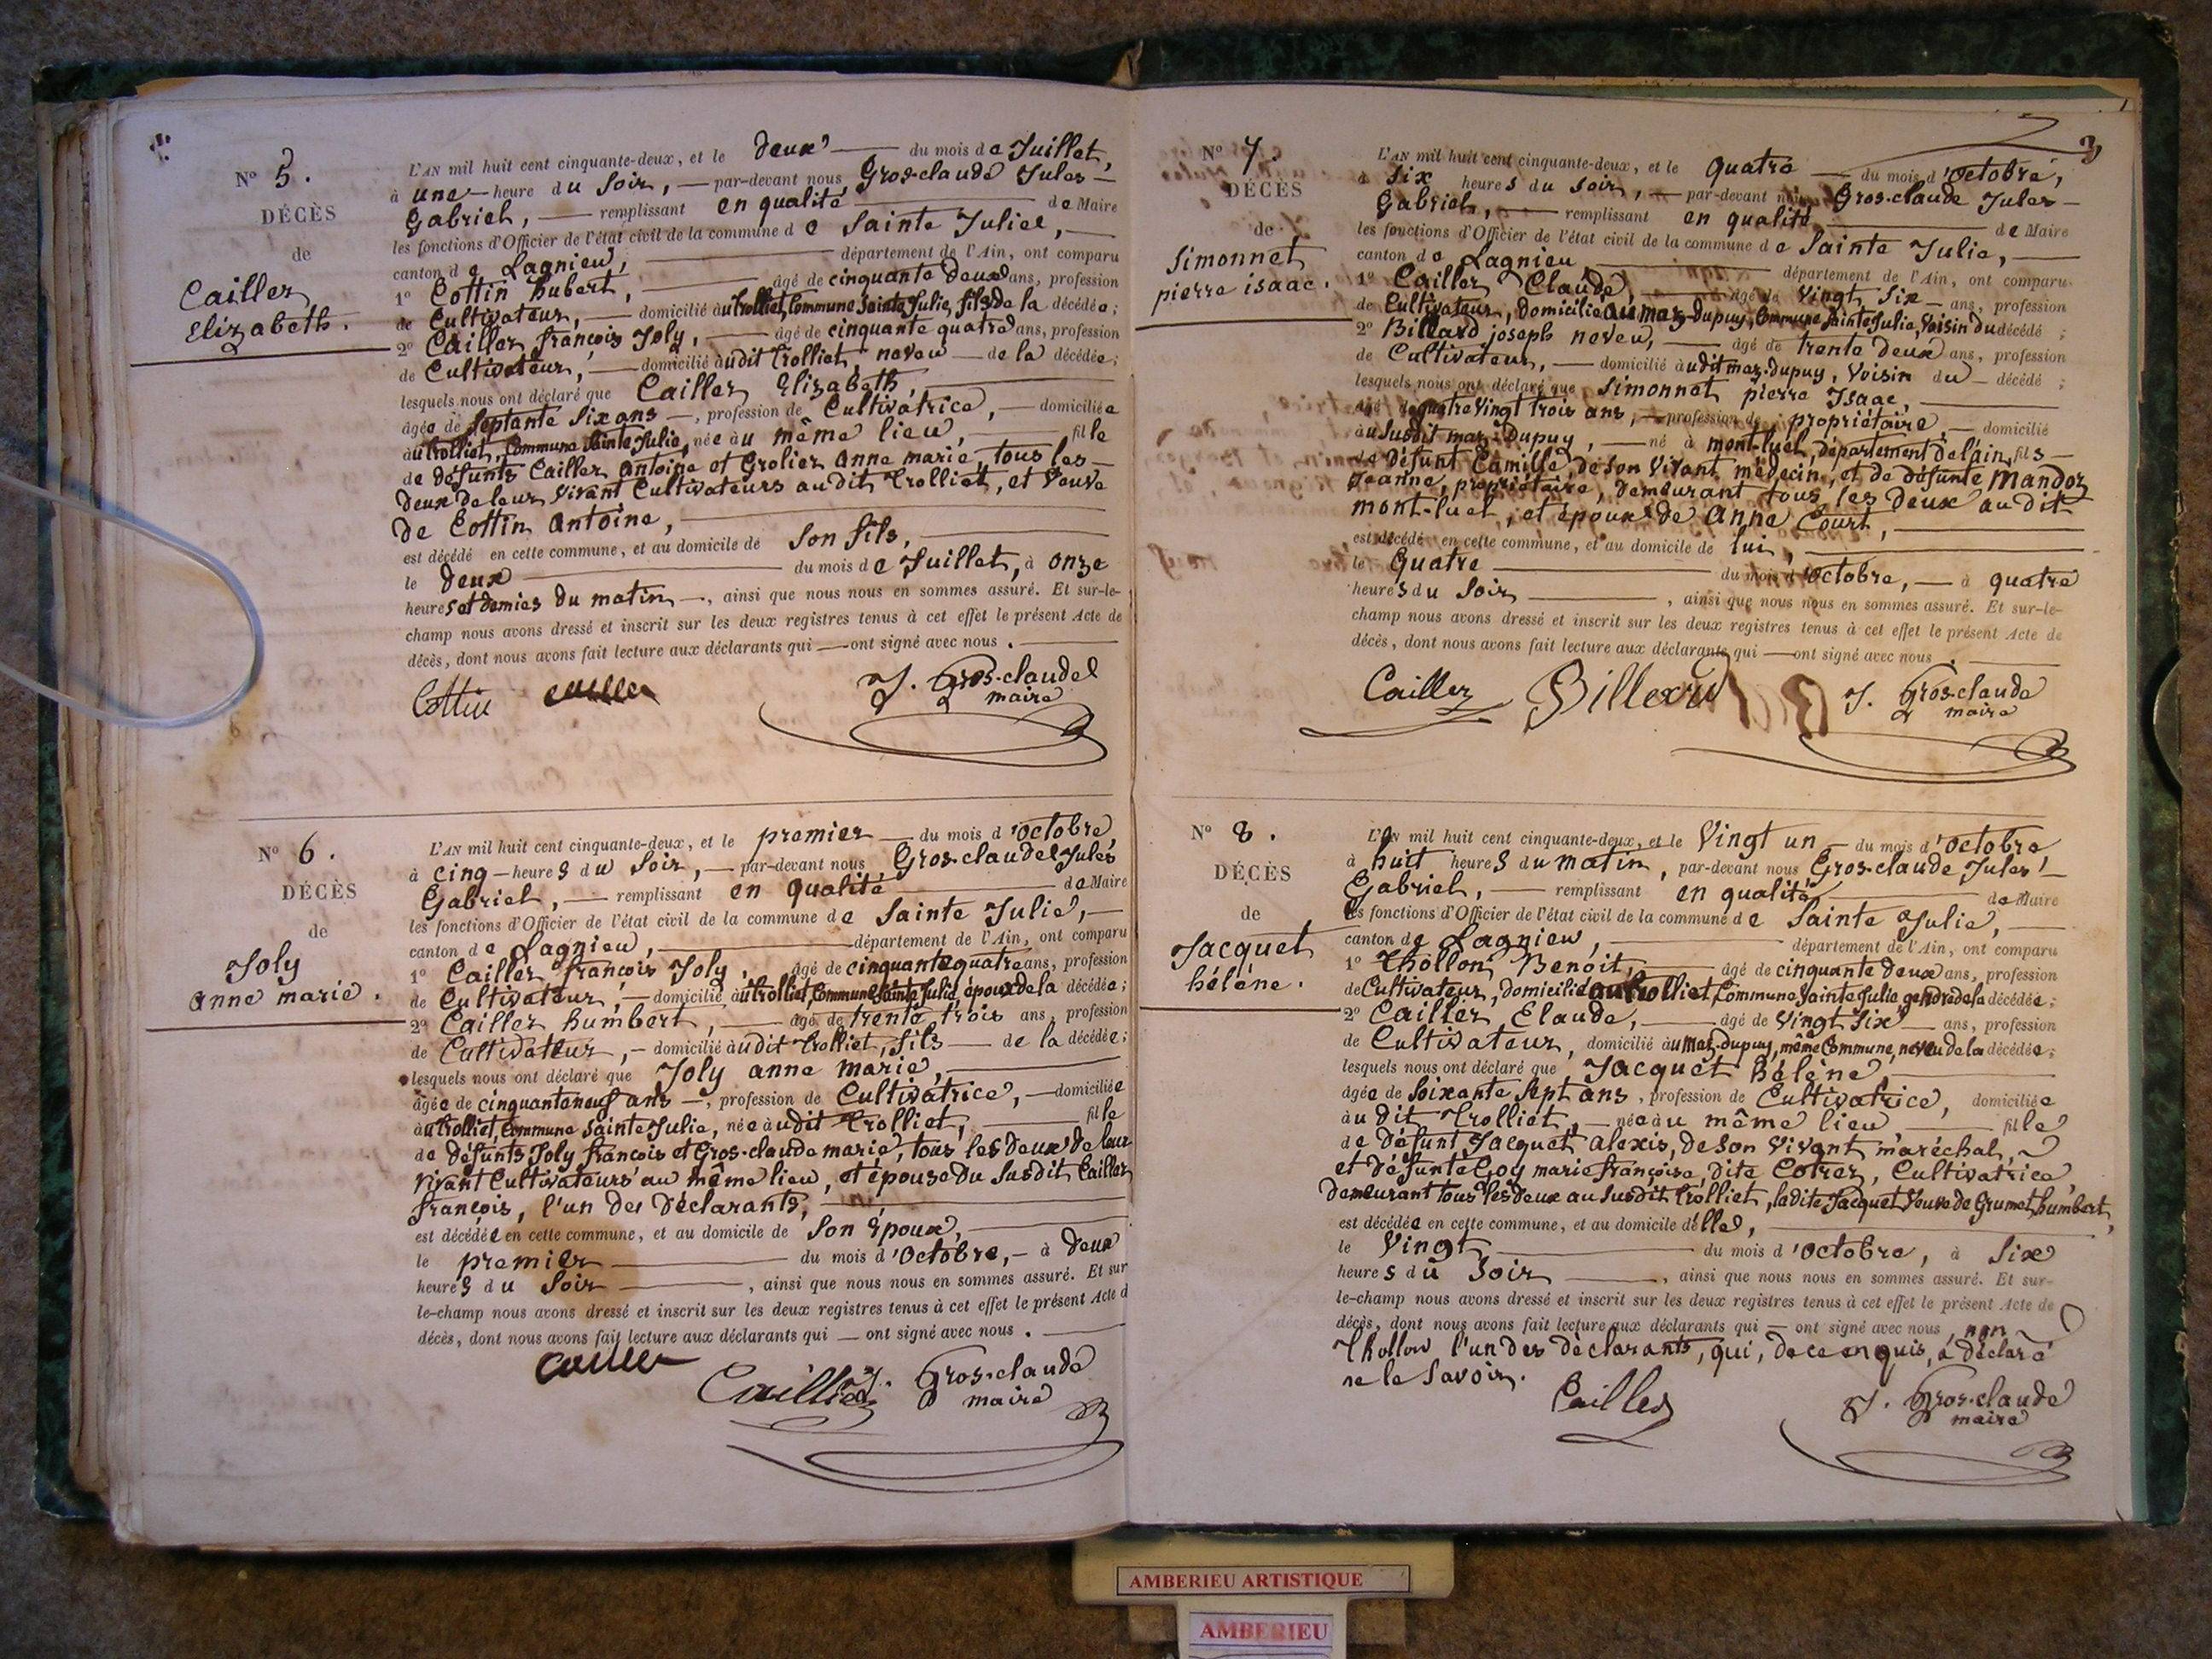 N° 5.
DÉCÈS
de
Cailler
Elizabeth.
L'AN mil huit cent cinquante-deux, et le deux du mois de Juillet,
à une heure du Soir, par-devant nous Gros-claude Jules
Gabriel, remplissant en qualité de Maire
les fonctions d'Officier de l'état civil de la commune de Sainte Julie,
canton de Lagnieu, département de l'Ain, ont comparu
1° Cottin hubert, âgé de cinquante deux ans, profession
de Cultivateur, domicilié au trolliet, Commune Sainte Julie, fils de la décédée;
2° Cailler françois Joly, âgé de cinquante quatre ans, profession
de Cultivateur, domicilié audit trolliet, neveu de la décédée;
lesquels nous ont déclaré que Cailler Elizabeth,
âgée de Septante Six ans, profession de Cultivatrice, domiciliée
au trolliet, Commune Sainte Julie, née au même lieu, fille
de défunts Cailler Antoine et Grolier Anne marie, tous les
deux de leur vivant Cultivateurs audit trolliet, et Veuve
de Cottin Antoine,
est décédé en cette commune, et au domicile de Son fils,
le deux du mois de Juillet, à onze
heures et demies du matin, ainsi que nous nous en sommes assuré. Et sur-le-
champ nous avons dressé et inscrit sur les deux registres tenus à cet effet le présent Acte de
décès, dont nous avons fait lecture aux déclarants qui ont signé avec nous.
Cottin Cailler J. Gros-claude
maire
N° 6.
DÉCÈS
de
Joly
Anne marie.
L'AN mil huit cent cinquante-deux, et le premier du mois d'Octobre
à cinq heures du Soir, par-devant nous Gros-claude Jules
Gabriel, remplissant en qualité de Maire
les fonctions d'Officier de l'état civil de la commune de Sainte Julie,
canton de Lagnieu, département de l'Ain, ont comparu
1° Cailler françois Joly, âgé de cinquante quatre ans, profession
de Cultivateur, domicilié au trolliet, Commune Sainte Julie, époux de la décédée;
2° Cailler humbert, âgé de trente trois ans, profession
de Cultivateur, domicilié audit trolliet, fils de la décédée;
lesquels nous ont déclaré que Joly anne marie,
âgée de cinquante neuf ans, profession de Cultivatrice, domiciliée
au trolliet, Commune Sainte Julie, née audit trolliet, fille
de défunts Joly françois et Gros-claude marie, tous les deux de leur
vivant Cultivateurs au même lieu, et épouse du Susdit Cailler
françois, l'un des déclarants,
est décédée en cette commune, et au domicile de Son Époux,
le premier du mois d'Octobre, à deux
heures du Soir, ainsi que nous nous en sommes assuré. Et sur
le-champ nous avons dressé et inscrit sur les deux registres tenus à cet effet le présent Acte d
décès, dont nous avons fait lecture aux déclarants qui ont signé avec nous.
Cailler Cailler J. Gros-claude
maire
N° 7.
DÉCÈS
de
Simonnet
pierre isaac.
L'AN mil huit cent cinquante-deux, et le quatre du mois d'Octobre,
à Six heures du Soir, par-devant nous Gros-claude Jules
Gabriel, remplissant en qualité de Maire
les fonctions d'Officier de l'état civil de la commune de Sainte Julie,
canton de Lagnieu, département de l'Ain, ont comparu
1° Cailler Claude, âgé de Vingt Six ans, profession
de Cultivateur, domicilié au maz-dupuy, Commune Sainte Julie, Voisin du décédé;
2° Billard joseph neveu, âgé de trente deux ans, profession
de Cultivateur, domicilié audit maz-dupuy, Voisin du décédé;
lesquels nous ont déclaré que Simonnet pierre Isaac,
âgé de quatre Vingt trois ans, profession de propriétaire, domicilié
au Susdit maz-Dupuy, né à mont-luel, département de l'ain, fils
de défunt Camille, de Son Vivant médecin, et de défunte Mandoz
Jeanne, propriétaire, demeurant tous les deux audit
mont-luel, et époux de Anne Court,
est décédé en cette commune, et au domicile de lui,
le Quatre du mois d'Octobre, à quatre
heures du Soir, ainsi que nous nous en sommes assuré. Et sur-le-
champ nous avons dressé et inscrit sur les deux registres tenus à cet effet le présent Acte de
décès, dont nous avons fait lecture aux déclarants qui ont signé avec nous.
Cailler Billard J. Gros-claude
maire
N° 8.
DÉCÈS
de
Jacquet
hélène.
L'AN mil huit cent cinquante-deux, et le Vingt un du mois d'Octobre
à huit heures du matin, par-devant nous Gros-claude Jules
Gabriel, remplissant en qualité de Maire
les fonctions d'Officier de l'état civil de la commune de Sainte Julie,
canton de Lagnieu, département de l'Ain, ont comparu
1° Thollon Benoit, âgé de cinquante deux ans, profession
de Cultivateur, domicilié au trolliet, Commune Sainte Julie, gendre de la décédée;
2° Cailler Claude, âgé de Vingt Six ans, profession
de Cultivateur, domicilié au maz-dupuy, même Commune, neveu de la décédée;
lesquels nous ont déclaré que Jacquet hélène
âgée de Soixante Sept ans, profession de Cultivatrice, domiciliée
au dit trolliet, née au même lieu fille
de défunt Jacquet alexis, de Son Vivant maréchal,
et défunte marie françoise, dite Cotrez, Cultivatrice,
demeurant tous les deux au Susdit trolliet, la dite Jacquet Veuve de Grumet humbert,
est décédée en cette commune, et au domicile d'elle,
le Vingt du mois d'Octobre, à Six
heures du Soir, ainsi que nous nous en sommes assuré. Et sur-
le-champ nous avons dressé et inscrit sur les deux registres tenus à cet effet le présent Acte de
décès, dont nous avons fait lecture aux déclarants qui ont signé avec nous, non
Thollon l'un des déclarants, qui, de ce enquis, a déclaré
ne le Savoir.
Cailler J. Gros-claude
maire
AMBERIEU ARTISTIQUE
AMBERIEU